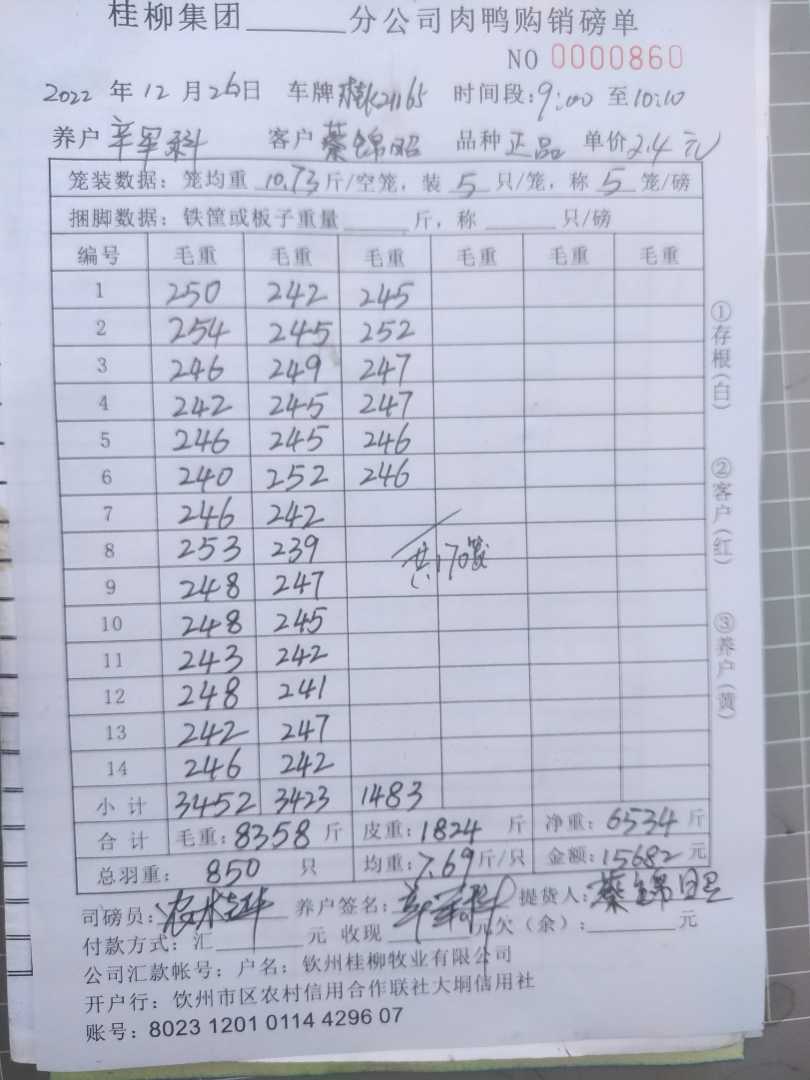 桂柳集团______分公司肉鸭购销磅单
NO 0000860
2022 年 12 月 26日 车牌 21165 时间段:9:00 至10:10
养户 辛军科 客户 蔡锦昭 品种 正品 单价2.4元
笼装数据: 笼均重 10.73 斤/空笼, 装 5 只/笼, 称 5 笼/磅
捆脚数据: 铁筐或板子重量______斤, 称______只/磅
编号 毛重 毛重 毛重 毛重 毛重 毛重
1 250 242 245
2 254 245 252
3 246 249 247
4 242 245 247
5 246 245 246
6 240 252 246
7 246 242
8 253 239
共170笼
9 248 247
10 248 245
11 243 242
12 248 241
13 242 247
14 246 242
小计 3452 3423 1483
合计 毛重:8358 斤 皮重:1824 斤 净重:6534 斤
总羽重: 850 只 均重:7.69斤/只 金额:15682 元
司磅员: 养户签名:辛军科 提货人:蔡锦昭
付款方式: 汇______元 收现______元欠(余):______元
公司汇款帐号: 户名: 钦州桂柳牧业有限公司
开户行: 饮州市区农村信用合作联社大垌信用社
账号: 8023 1201 0114 4296 07
①存根(白)
②客户(红)
③养户(黄)